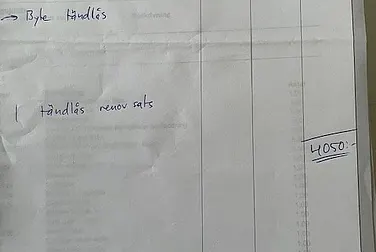 → Byte tändlås
1 tändlås renov sats
4050:-